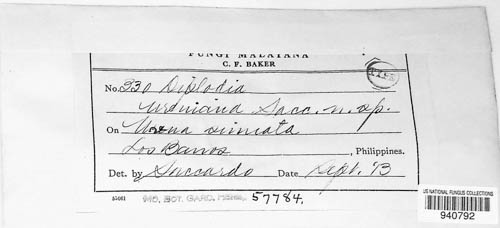 FUNGI MALAYANA
C. F. BAKER
No. 330 Diplodia
Sacc. n. sp.
On Urena sinuata
Los Banos, Philippines.
Det. by Saccardo Date Sept. 13
MO. BOT. GARD. HERB. 57784.
US NATIONAL FUNGUS COLLECTIONS
940792